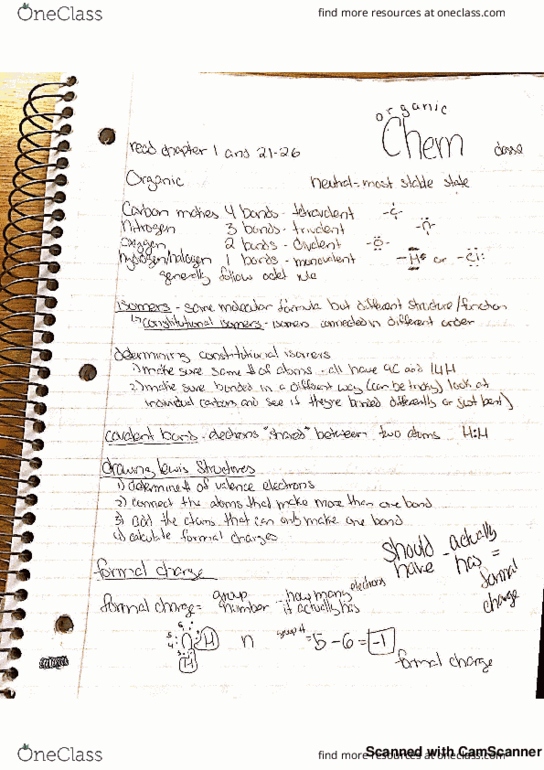 OneClass
find more resources at oneclass.com
organic
Chem
read chapter 1 and 21-26
Organic
neutral = most stable state
Carbon makes 4 bonds - tetravalent -C-
nitrogen 3 bonds - trivalent -N-
oxygen 2 bonds - divalent -O-
hydrogen/halogen 1 bonds - monovalent -H or -Cl:
generally follow octet rule
isomers - same molecular formula but different structure/function
constitutional isomers - isomers connected in different order
determining constitutional isomers
1) make sure same # of atoms - all have 9C and 14H
2) make sure bonded in a different way (can be tricky) look at
individual carbons and see if theyre bonded differently or just bent)
covalent bond - electrons "shared" between two atoms H:H
drawing lewis structures
1) determine # of valence electrons
2) connect the atoms that make more than one bond
3) add the atoms that can only make one bond
4) calculate formal charges
should have - actually has = formal charge
formal charge
formal charge = group number - how many electrons it actually has
N H n group # = 5 - 6 = -1
H
formal charge
Scanned with CamScanner
OneClass
find more resources at oneclass.com